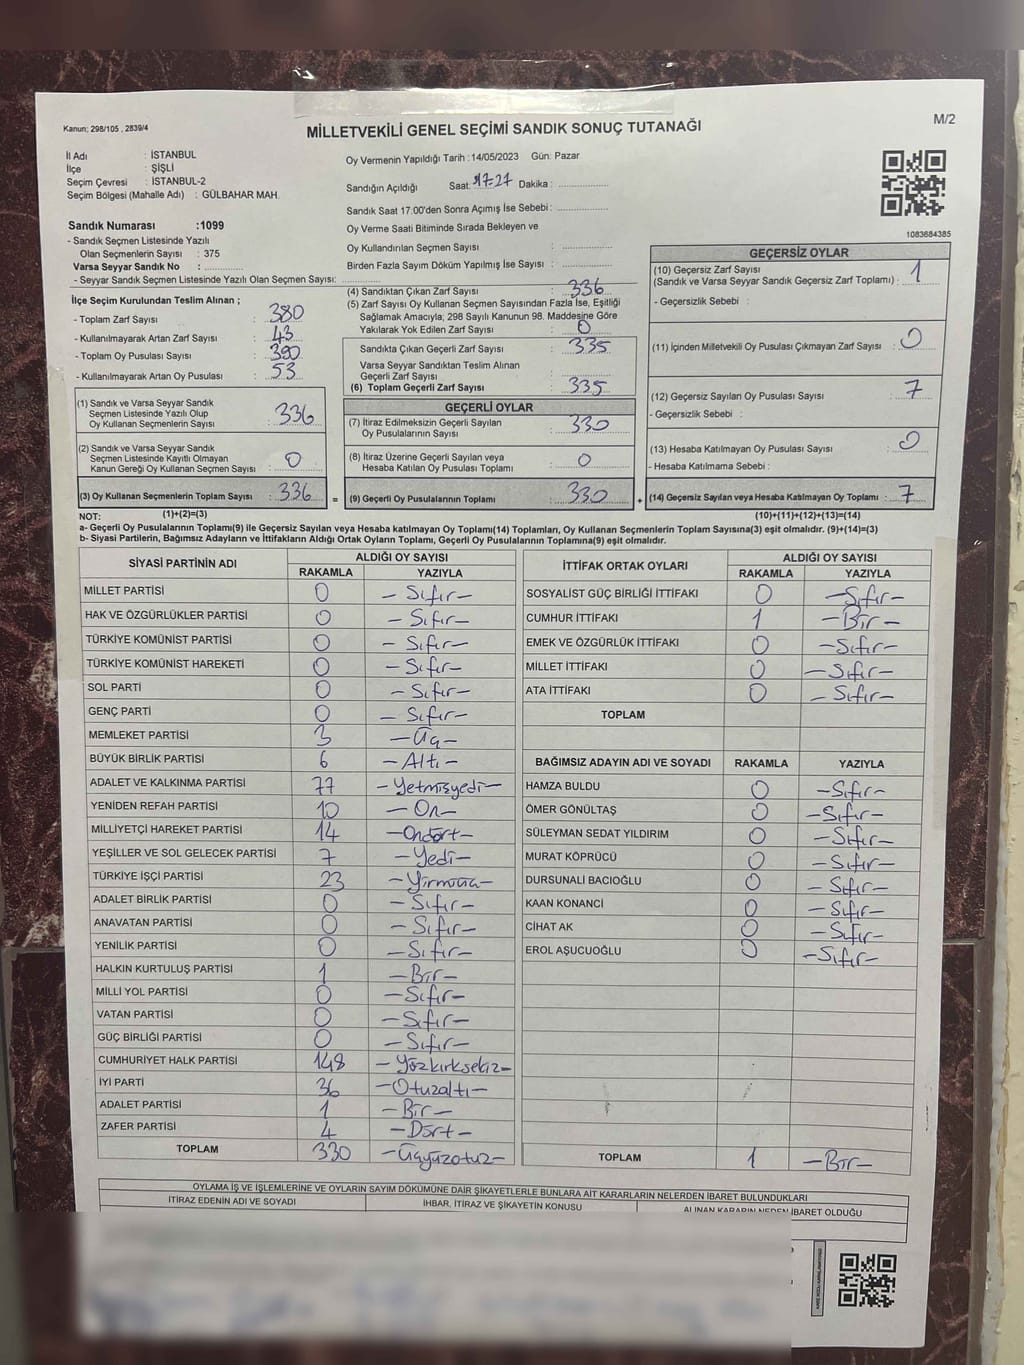 Kanun; 298/105 , 2839/4
M/2
MİLLETVEKİLİ GENEL SEÇİMİ SANDIK SONUÇ TUTANAĞI
İl Adı : İSTANBUL
İlçe : ŞİŞLİ
Seçim Çevresi : İSTANBUL-2
Seçim Bölgesi (Mahalle Adı) : GÜLBAHAR MAH.
Sandık Numarası :1099
- Sandık Seçmen Listesinde Yazılı
Olan Seçmenlerin Sayısı : 375
Varsa Seyyar Sandık No :
- Seyyar Sandık Seçmen Listesinde Yazılı Olan Seçmen Sayısı:
Oy Vermenin Yapıldığı Tarih :14/05/2023 Gün: Pazar
Sandığın Açıldığı Saat: 17:27 Dakika :
Sandık Saat 17.00'den Sonra Açımış İse Sebebi :
Oy Verme Saati Bitiminde Sırada Bekleyen ve
Oy Kullandırılan Seçmen Sayısı :
Birden Fazla Sayım Döküm Yapılmış İse Sayısı :
1083684385
İlçe Seçim Kurulundan Teslim Alınan ;
- Toplam Zarf Sayısı : 380
- Kullanılmayarak Artan Zarf Sayısı : 43
- Toplam Oy Pusulası Sayısı : 390
- Kullanılmayarak Artan Oy Pusulası : 53
(1) Sandık ve Varsa Seyyar Sandık
Seçmen Listesinde Yazılı Olup
Oy Kullanan Seçmenlerin Sayısı : 336
(2) Sandık ve Varsa Seyyar Sandık
Seçmen Listesinde Kayıtlı Olmayan
Kanun Gereği Oy Kullanan Seçmen Sayısı : 0
(3) Oy Kullanan Seçmenlerin Toplam Sayısı : 336
(4) Sandıktan Çıkan Zarf Sayısı : 336
(5) Zarf Sayısı Oy Kullanan Seçmen Sayısından Fazla İse, Eşitliği
Sağlamak Amacıyla; 298 Sayılı Kanunun 98. Maddesine Göre
Yakılarak Yok Edilen Zarf Sayısı : 0
Sandıkta Çıkan Geçerli Zarf Sayısı : 335
Varsa Seyyar Sandıktan Teslim Alınan
Geçerli Zarf Sayısı :
(6) Toplam Geçerli Zarf Sayısı : 335
GEÇERLİ OYLAR
(7) İtiraz Edilmeksizin Geçerli Sayılan
Oy Pusulalarının Sayısı : 330
(8) İtiraz Üzerine Geçerli Sayılan veya
Hesaba Katılan Oy Pusulası Toplamı : 0
= (9) Geçerli Oy Pusulalarının Toplamı : 330 +
GEÇERSİZ OYLAR
(10) Geçersiz Zarf Sayısı
(Sandık ve Varsa Seyyar Sandık Geçersiz Zarf Toplamı) : 1
- Geçersizlik Sebebi :
(11) İçinden Milletvekili Oy Pusulası Çıkmayan Zarf Sayısı : 0
(12) Geçersiz Sayılan Oy Pusulası Sayısı : 7
- Geçersizlik Sebebi :
(13) Hesaba Katılmayan Oy Pusulası Sayısı : 0
- Hesaba Katılmama Sebebi :
(14) Geçersiz Sayılan veya Hesaba Katılmayan Oy Toplamı : 7
NOT: (1)+(2)=(3) (10)+(11)+(12)+(13)=(14)
a- Geçerli Oy Pusulalarının Toplamı(9) ile Geçersiz Sayılan veya Hesaba katılmayan Oy Toplamı(14) Toplamları, Oy Kullanan Seçmenlerin Toplam Sayısına(3) eşit olmalıdır. (9)+(14)=(3)
b- Siyasi Partilerin, Bağımsız Adayların ve İttifakların Aldığı Ortak Oyların Toplamı, Geçerli Oy Pusulalarının Toplamına(9) eşit olmalıdır.
SİYASİ PARTİNİN ADI ALDIĞI OY SAYISI
RAKAMLA YAZIYLA
MİLLET PARTİSİ 0 – Sıfır –
HAK VE ÖZGÜRLÜKLER PARTİSİ 0 – Sıfır –
TÜRKİYE KOMÜNİST PARTİSİ 0 – Sıfır –
TÜRKİYE KOMÜNİST HAREKETİ 0 – Sıfır –
SOL PARTİ 0 – Sıfır –
GENÇ PARTİ 0 – Sıfır –
MEMLEKET PARTİSİ 3 – Üç –
BÜYÜK BİRLİK PARTİSİ 6 – Altı –
ADALET VE KALKINMA PARTİSİ 77 – Yetmişyedi –
YENİDEN REFAH PARTİSİ 10 – On –
MİLLİYETÇİ HAREKET PARTİSİ 14 – Ondört –
YEŞİLLER VE SOL GELECEK PARTİSİ 7 – Yedi –
TÜRKİYE İŞÇİ PARTİSİ 23 – Yirmiüç –
ADALET BİRLİK PARTİSİ 0 – Sıfır –
ANAVATAN PARTİSİ 0 – Sıfır –
YENİLİK PARTİSİ 0 – Sıfır –
HALKIN KURTULUŞ PARTİSİ 1 – Bir –
MİLLİ YOL PARTİSİ 0 – Sıfır –
VATAN PARTİSİ 0 – Sıfır –
GÜÇ BİRLİĞİ PARTİSİ 0 – Sıfır –
CUMHURİYET HALK PARTİSİ 148 – Yüzkırksekiz –
İYİ PARTİ 36 – Otuzaltı –
ADALET PARTİSİ 1 – Bir –
ZAFER PARTİSİ 4 – Dört –
TOPLAM 330 – Üçyüzotuz –
İTTİFAK ORTAK OYLARI ALDIĞI OY SAYISI
RAKAMLA YAZIYLA
SOSYALİST GÜÇ BİRLİĞİ İTTİFAKI 0 – Sıfır –
CUMHUR İTTİFAKI 1 – Bir –
EMEK VE ÖZGÜRLÜK İTTİFAKI 0 – Sıfır –
MİLLET İTTİFAKI 0 – Sıfır –
ATA İTTİFAKI 0 – Sıfır –
TOPLAM
BAĞIMSIZ ADAYIN ADI VE SOYADI RAKAMLA YAZIYLA
HAMZA BULDU 0 – Sıfır –
ÖMER GÖNÜLTAŞ 0 – Sıfır –
SÜLEYMAN SEDAT YILDIRIM 0 – Sıfır –
MURAT KÖPRÜCÜ 0 – Sıfır –
DURSUNALİ BACIOĞLU 0 – Sıfır –
KAAN KONANCİ 0 – Sıfır –
CİHAT AK 0 – Sıfır –
EROL AŞUCUOĞLU 0 – Sıfır –
TOPLAM 1 – Bir –
OYLAMA İŞ VE İŞLEMLERİNE VE OYLARIN SAYIM DÖKÜMÜNE DAİR ŞİKAYETLERLE BUNLARA AİT KARARLARIN NELERDEN İBARET BULUNDUKLARI
İTİRAZ EDENİN ADI VE SOYADI İHBAR, İTİRAZ VE ŞİKAYETİN KONUSU ALINAN KARARIN NEDEN İBARET OLDUĞU